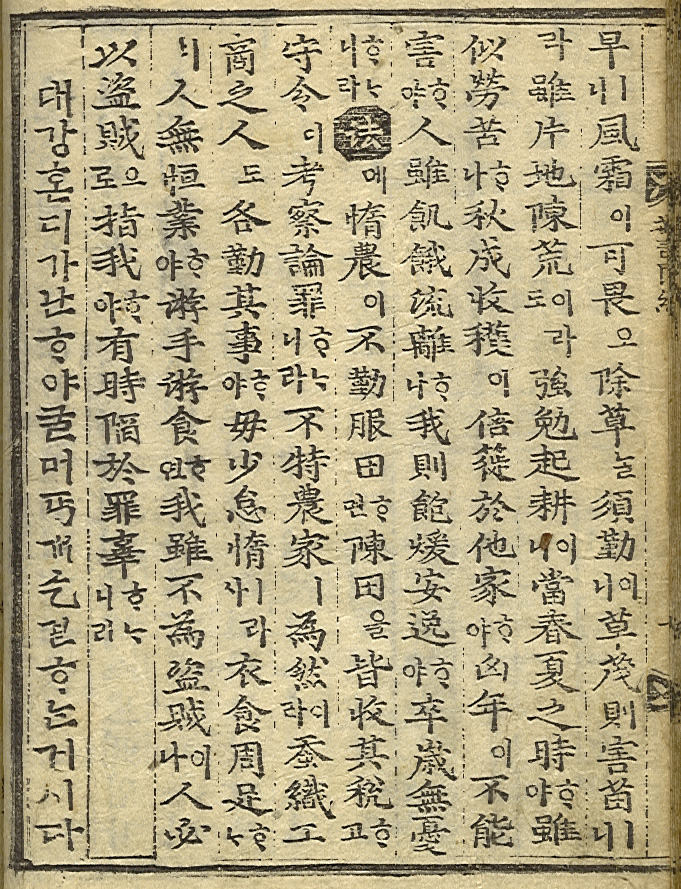 早ㅣ니風霜이可畏오除草ᄂᆞᆯ須勤이니草茂則害苗ㅣ니
라雖片地陳荒이라도強勉起耕이니當春夏之時ᄒᆞ야雖
似勞苦ᄒᆞ나秋成收穫이倍蓰於他家ᄒᆞ야凶年이不能
害ᄒᆞ야人雖飢餓流離ᄒᆞ나我則飽煖安逸ᄒᆞ야卒歲無憂
ᄒᆞᄂᆞ니라法에惰農이不勤服田ᄒᆞ면陳田을皆收其稅ᄒᆞ고
守令이考察論罪ᄒᆞᄂᆞ니라不特農家ㅣ為然이라蚕織工
商之人도各勤其事ᄒᆞ야毋少怠惰라衣食周足ᄒᆞᄂᆞ
니人無恒業ᄒᆞ야游手游食ᄒᆞ면我雖不為盜賊이나人必
以盜賊으로指我ᄒᆞ야有時陷於罪辜ᄒᆞᄂᆞ니라
대강혼디가난ᄒᆞ야굴머丐개乞걷ᄒᆞᄂᆞᆫ거시다